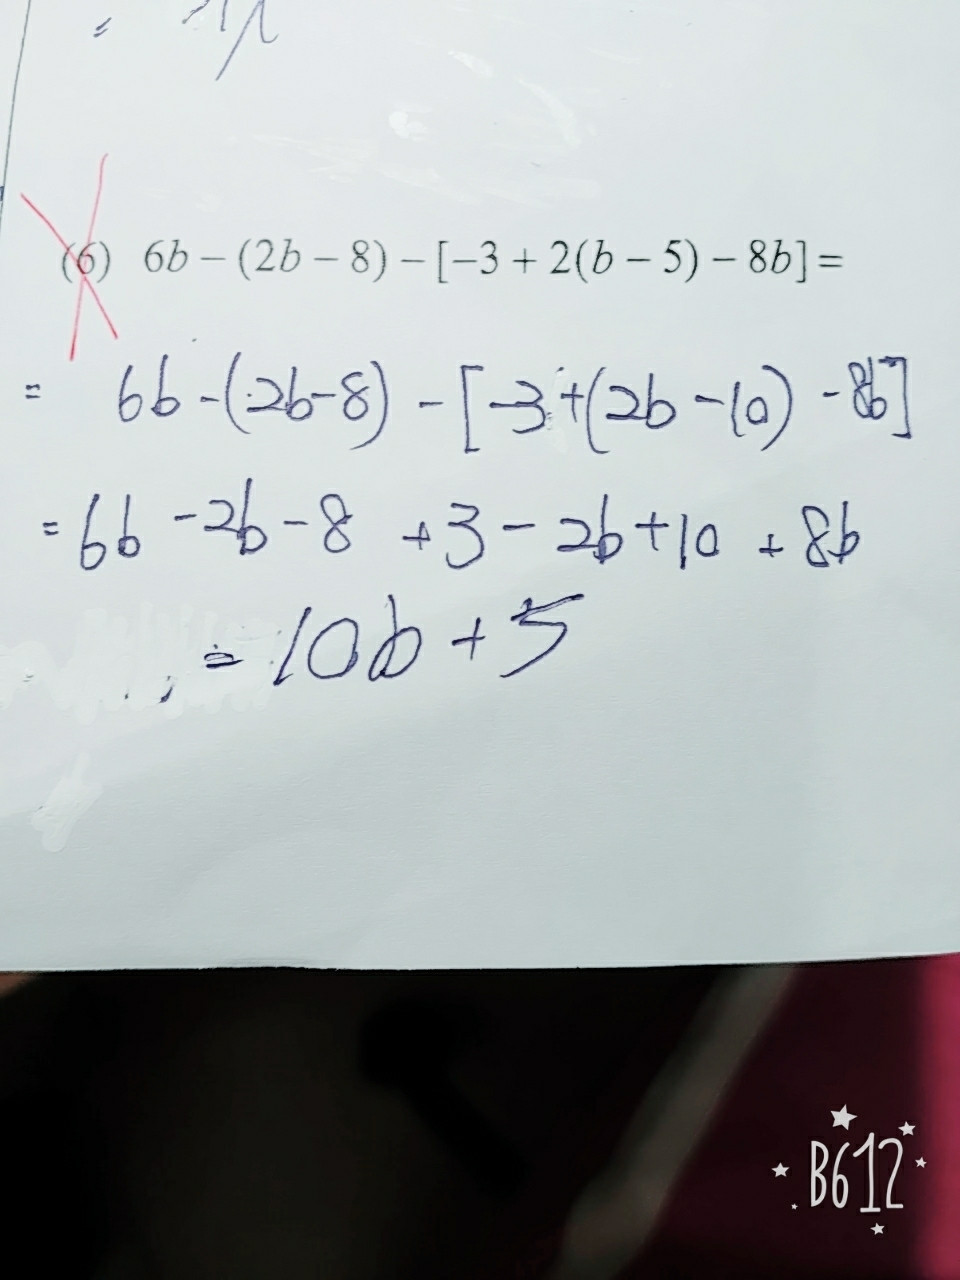 (6) 6b – (2b – 8) – [–3 + 2(b – 5) – 8b] =
= 6b -(2b-8) - [-3+(2b-10) -8b]
= 6b -2b-8 +3- 2b+10 + 8b
= 10b+5
B612